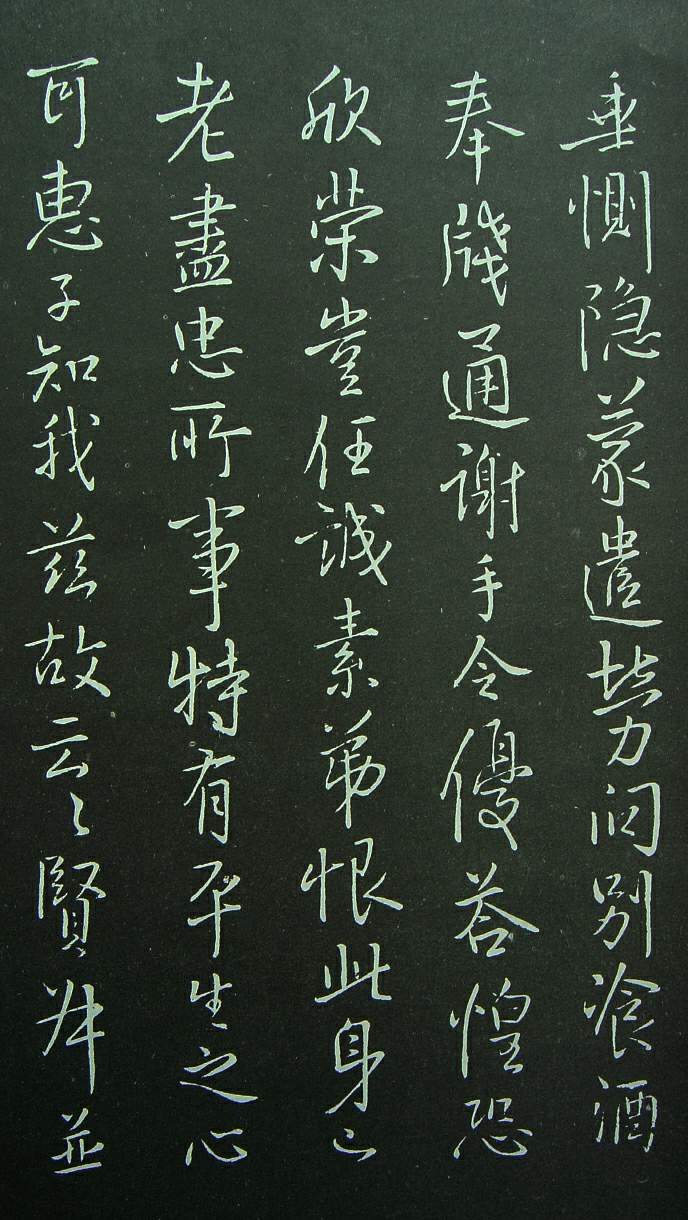 垂惻隐蒙遣勞问别飡酒
奉牋通謝手令優荅惶恐
欣荣豈任誠素苐恨此身已
老盡忠所事特有平生之心
可惠子知我兹故云々賢弟並